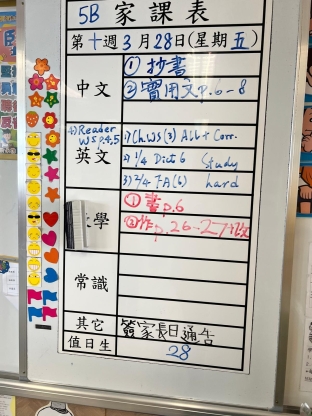 5B 家課表
第十週3月28日(星期五)
中文
① 抄書
② 實用文P.6-8
英文
4) Reader
WS P.4,5
1) Ch.WS(3) All + Corr.
2) 1/4 Dict 6 Study
3) 2/4 FA(6) hard
學
① 書p.6
② 作p.26-27改
常識
其它
簽家長日通告
值日生
28